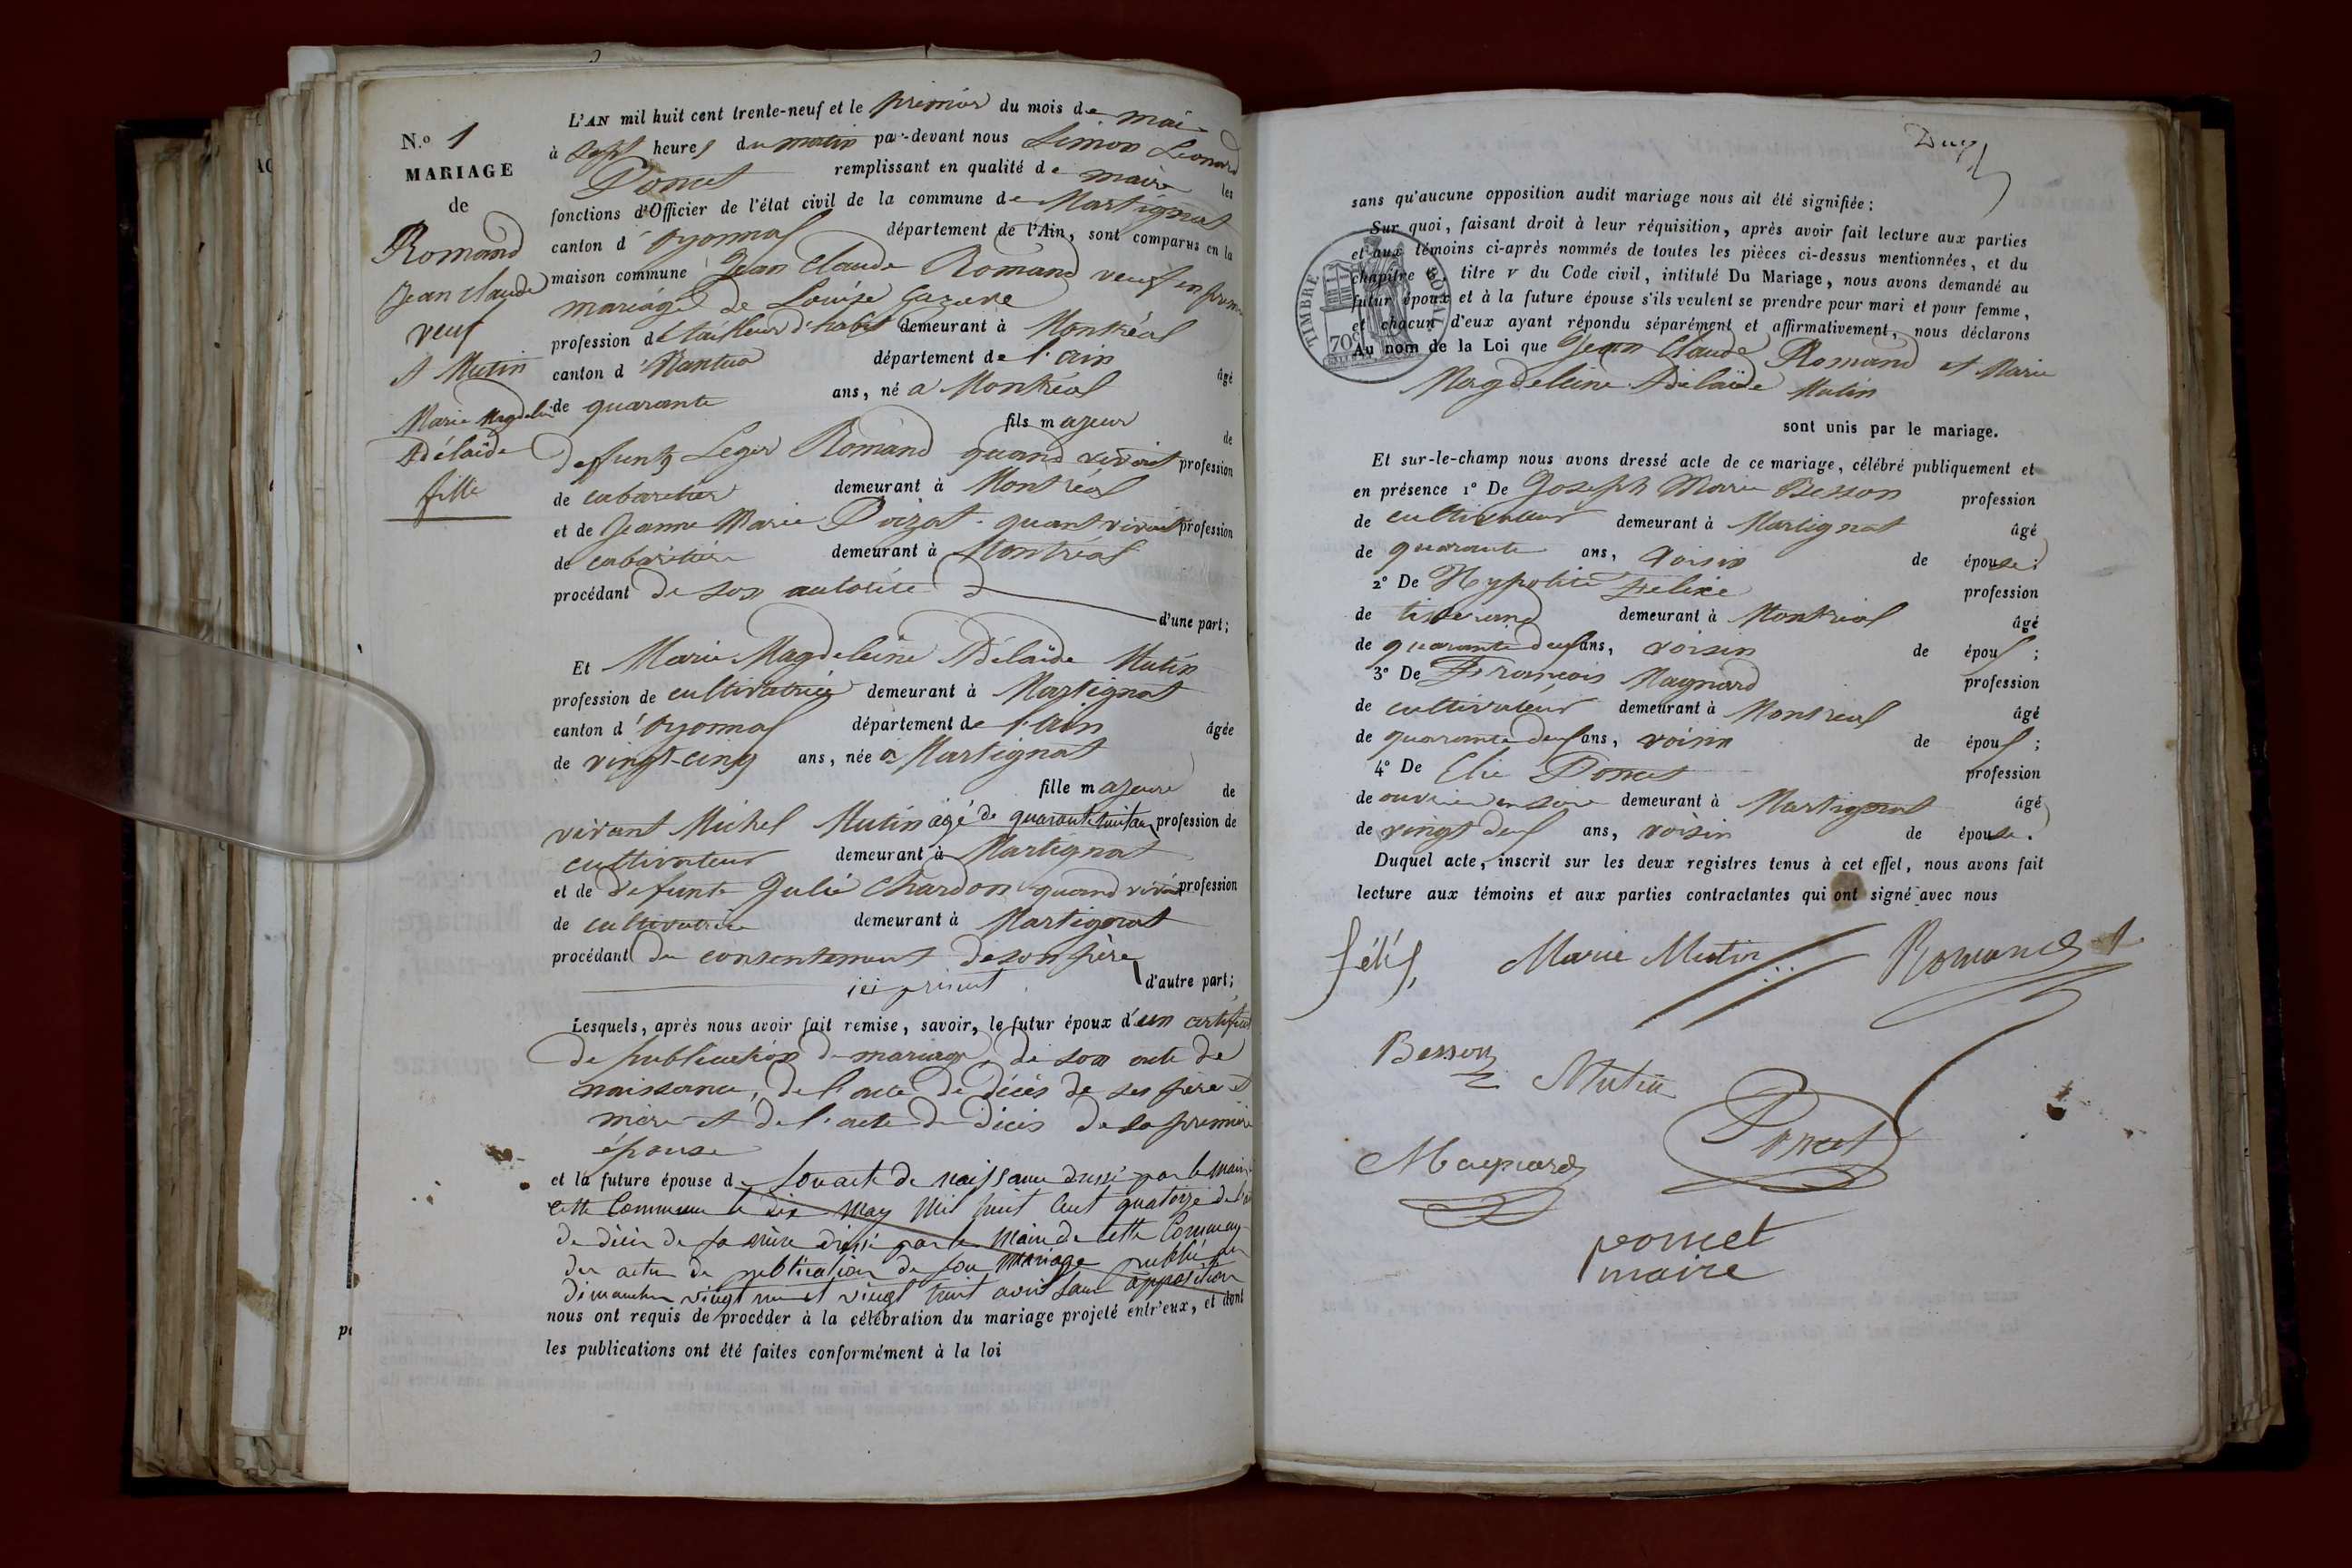 N.º 1
MARIAGE
de
Romand
Jean Claude
veuf
et Mutin
Marie Magdelei
Adélaïde
fille
L'AN mil huit cent trente-neuf et le premier du mois de mai
à sept heures du matin par-devant nous Simon Léonard
Poncet remplissant en qualité de maire les
fonctions d'Officier de l'état civil de la commune de Martignat
canton d'oyonnas département de l'Ain, sont comparus en la
maison commune Jean Claude Romand veuf en
mariage de Louise
profession de tailleur d'habit demeurant à Montréal
canton d Nantua département de l'ain âgé
de quarante ans, né a Montréal
fils majeur de
deffunts Leger Romand quand vivait profession
de cabaretier demeurant à Montréal
et de Jeanne Marie Poizat quant vivait profession
de cabaretière demeurant à Montréal
procédant de son autorité
d'une part;
Et Marie Magdeleine Adélaïde Mutin
profession de cultivatrice demeurant à Martignat
canton d'oyonnas département de l'ain âgée
de vingt-cinq ans, née à Martignat
fille majeure de
vivant Michel Mutin agé de quarante huit ans profession de
cultivateur demeurant à Martignat
et de défunte Julie Chardon quand vivait profession
de cultivatrice demeurant à Martignat
procédant du consentement de son père
ici présent d'autre part;
Lesquels, après nous avoir fait remise, savoir, le futur époux d'un certificat
de publication de mariage, de son acte de
naissance, de l'acte de décès de ses père et
mère et de l'acte de décès de sa première
épouse
et la future épouse de son acte de naissance dressé par le maire
cette Commune le dix may mil huit cent quatorze de
de décès de sa mère dressé par le Maire de cette Commune
des actes de publication de son mariage publié les
dimanches vingt un et vingt huit avril sans opposition
nous ont requis de procéder à la célébration du mariage projeté entr'eux, et dont
les publications ont été faites conformément à la loi
sans qu'aucune opposition audit mariage nous ait été signifiée:
Sur quoi, faisant droit à leur réquisition, après avoir fait lecture aux parties
et aux témoins ci-après nommés de toutes les pièces ci-dessus mentionnées, et du
chapitre titre v du Code civil, intitulé Du Mariage, nous avons demandé au
futur époux et à la future épouse s'ils veulent se prendre pour mari et pour femme,
et chacun d'eux ayant répondu séparément et affirmativement, nous déclarons
Au nom de la Loi que Jean Claude Romand et Marie
Magdelleine Adélaïde Mutin
sont unis par le mariage.
TIMBRE ROYAL
Et sur-le-champ nous avons dressé acte de ce mariage, célébré publiquement et
en présence 1º De Joseph Marie Besson profession
de cultivateur demeurant à Martignat âgé
de quarante ans, voisin de épouse;
2º De Hypolite Felix profession
de tisserand demeurant à Montréal âgé
de quarante deux ans, voisin de époux;
3º De François Maynard profession
de cultivateur demeurant à Montréal âgé
de quarante deux ans, voisin de époux;
4º De Elie Poncet profession
de ouvrier en soie demeurant à Martignat âgé
de vingt deux ans, voisin de épouse.
Duquel acte, inscrit sur les deux registres tenus à cet effet, nous avons fait
lecture aux témoins et aux parties contractantes qui ont signé avec nous
félix Marie Mutin Romand
Besson Mutin Poncet
Maynard
poncet
maire